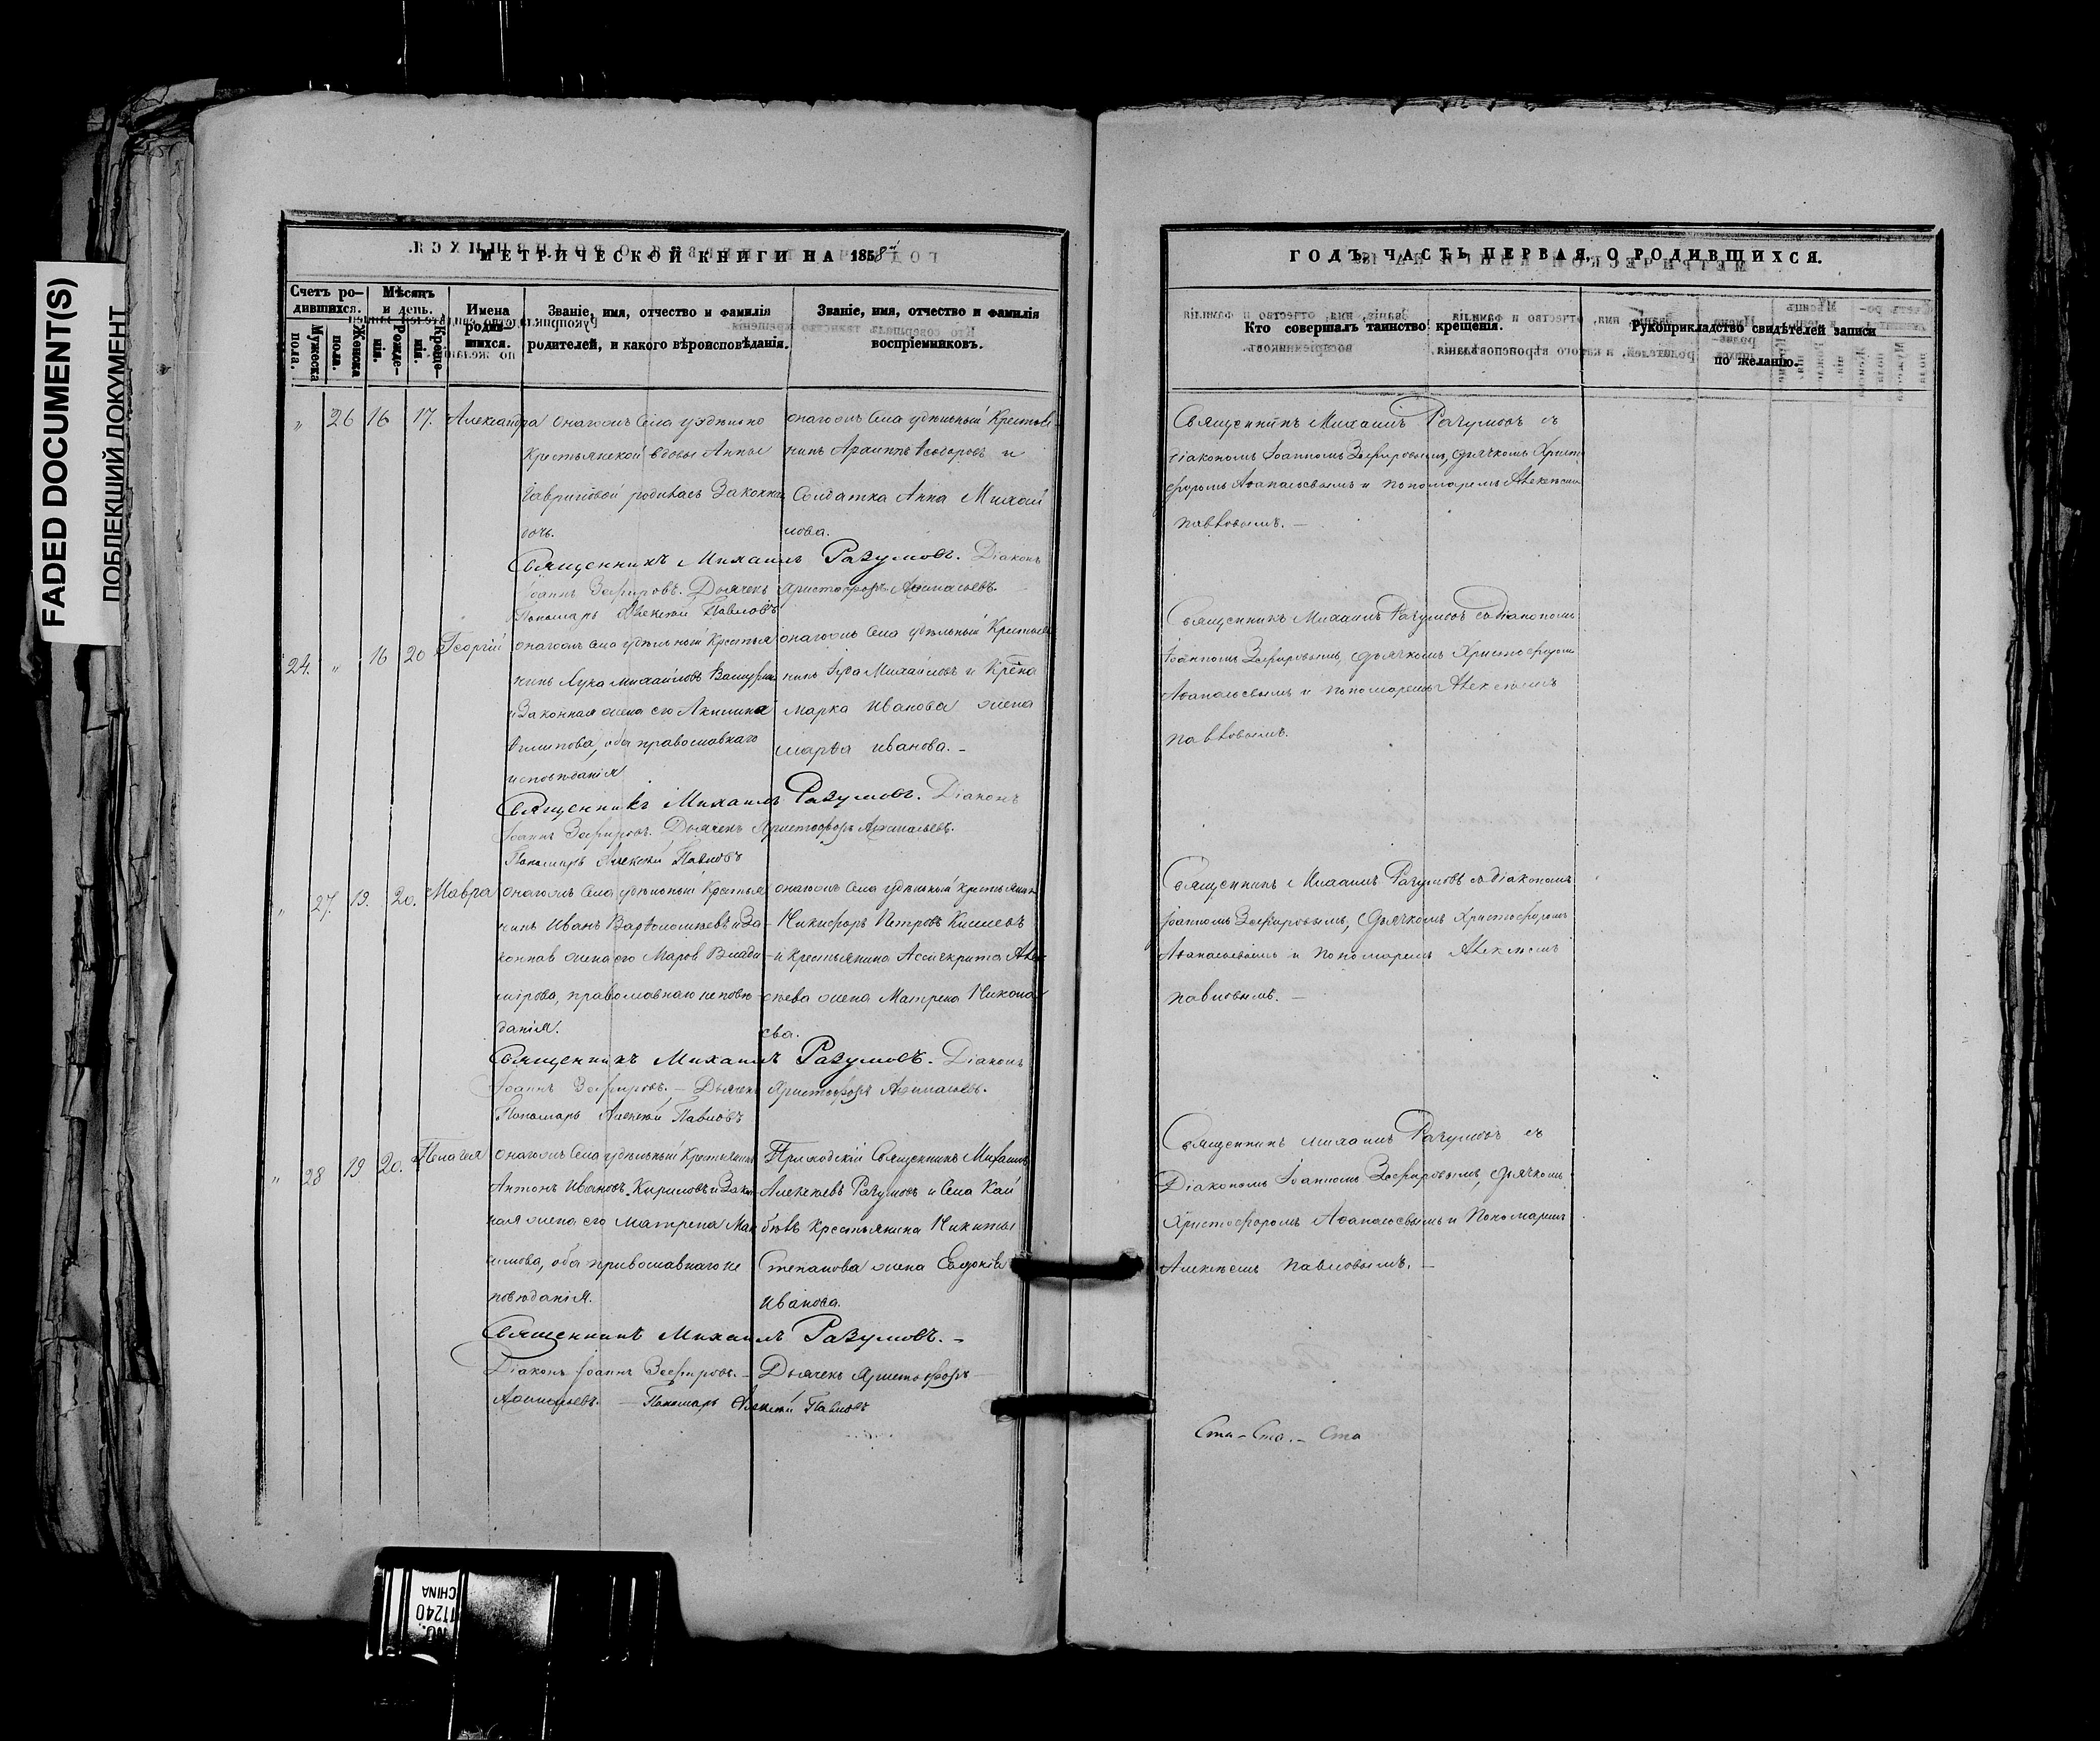 FADED DOCUMENT(S)
ПОБЛЕКШИЙ ДОКУМЕНТ
МЕТРИЧЕСКОЙ КНИГИ НА 1858й
Счетъ ро-
дившихся.
Мужеска
пола.
Женска
пола.
Мѣсяцъ
и день.
Рожде-
нія.
Креще-
нія.
Имена
родив-
шихся.
Званіе, имя, отчество и фамилія
родителей, и какого вѣроисповѣданія.
Званіе, имя, отчество и фамилія
воспріемниковъ.
" 26 16 17. Александра
онагожъ Села удѣльно
Крестьянской вдовы Анны
Гавриловой родилась Законна
дочь.
онагожъ Села удѣльный Крестья-
нинъ Архиппъ Ѳедоровъ и
Солдатка Анна Михай
лова.
Священникъ Михаилъ Разумовъ. Діаконъ
Іоаннъ Зефировъ. Дьячекъ Христофоръ Аѳанасьевъ.
Пономарь Алексѣй Павловъ
24. " 16 20 Георгій
онагожъ Села удѣльный Крестья
нинъ Лука Михайловъ
и Законная жена его Акилина
Филипова, оба православнаго
исповѣданія
онагожъ Села удѣльный Крестья
нинъ Михайловъ и Кр-на
Марка Иванова жена
Марѳа Иванова. -
Священникъ Михаилъ Разумовъ. Діаконъ
Іоаннъ Зефировъ. Дьячекъ Христофоръ Аѳанасьевъ.
Пономарь Алексѣй Павловъ
" 27. 19. 20. Мавра
онагожъ Села удѣльный Крестья
нинъ Иванъ Варѳоломѣевъ и За-
конная жена его Владі-
мірова, православнаго исповѣ-
данія.
онагожъ Села удѣльный крестьянинъ
Никифоръ Петровъ
и Крестьянина Асигкрита Алек
сѣева жена Матрена Никола
ева.
Священникъ Михаилъ Разумовъ. Діаконъ
Іоаннъ Зефировъ. - Дьячекъ Христофоръ Аѳанасьевъ.
Пономарь Алексѣй Павловъ
" 28 19 20. Пелагея
онагожъ Села удѣльный Крестьянинъ
Антонъ Ивановъ Кириловъ и Закон
ная жена его Матрена Мак
симова, оба православнаго ис
повѣданія.
Приходскій Священникъ Михаилъ
Алексѣевъ Разумовъ и Села Кай
Крестьянина Никиты
Степанова жена Евдокія
Иванова.
Священникъ Михаилъ Разумовъ. -
Діаконъ Іоаннъ Зефировъ. - Дьячекъ Христофоръ
Аѳанасьевъ. - Пономарь Алексѣй Павловъ
ГОДЪ, ЧАСТЬ ПЕРВАЯ, О РОДИВШИХСЯ.
Кто совершалъ таинство крещенія.
Рукоприкладство свидѣтелей записи
по желанію.
Священникъ Михаилъ Разумовъ съ
діакономъ Іоанномъ Зефировымъ, дьячкомъ Христо
форомъ Аѳанасьевымъ и пономаремъ Алексѣемъ
Павловымъ. -
Священникъ Михаилъ Разумовъ съ діакономъ
Іоанномъ Зефировымъ, дьячкомъ Христофоромъ
Аѳанасьевымъ и пономаремъ Алексѣемъ
Павловымъ.
Священникъ Михаилъ Разумовъ съ діакономъ
Іоанномъ Зефировымъ, дьячкомъ Христофоромъ
Аѳанасьевымъ и пономаремъ Алексѣемъ
Павловымъ. -
Священникъ Михаилъ Разумовъ съ
Діакономъ Іоанномъ Зефировымъ, дьячкомъ
Христофоромъ Аѳанасьевымъ и Пономаремъ
Алексѣемъ Павловымъ. -
Ста - Ста. - Ста
NO.
11240
CHINA